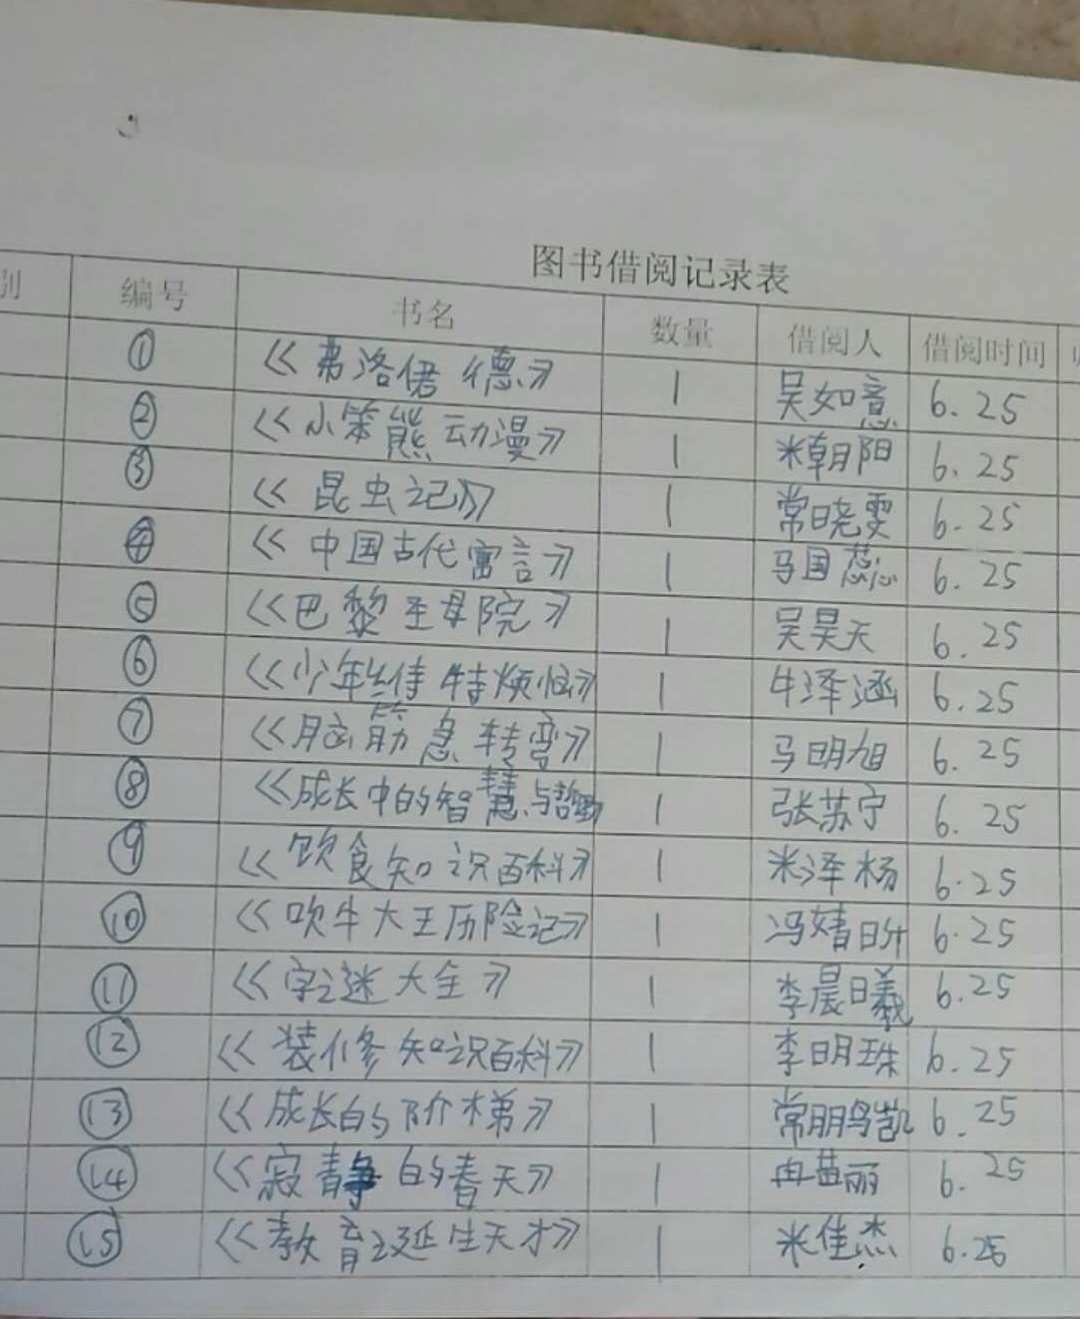 图书借阅记录表
别 编号 书名 数量 借阅人 借阅时间
① 《弗洛偌德》 1 吴如意 6.25
② 《小笨熊动漫》 1 米朝阳 6.25
③ 《昆虫记》 1 常晓雯 6.25
④ 《中国古代寓言》 1 马国蕊 6.25
⑤ 《巴黎圣母院》 1 吴昊天 6.25
⑥ 《少年维特烦恼》 1 牛泽涵 6.25
⑦ 《脑筋急转弯》 1 马明旭 6.25
⑧ 《成长中的智慧与哲 1 张苏宁 6.25
⑨ 《饮食知识百科》 1 米泽杨 6.25
⑩ 《吹牛大王历险记》 1 冯婧昕 6.25
⑪ 《字谜大全》 1 李晨曦 6.25
⑫ 《装修知识百科》 1 李明珠 6.25
⑬ 《成长的阶梯》 1 常鹏凯 6.25
⑭ 《寂静的春天》 1 冉苗丽 6.25
⑮ 《教育诞生天才》 1 米佳杰 6.25